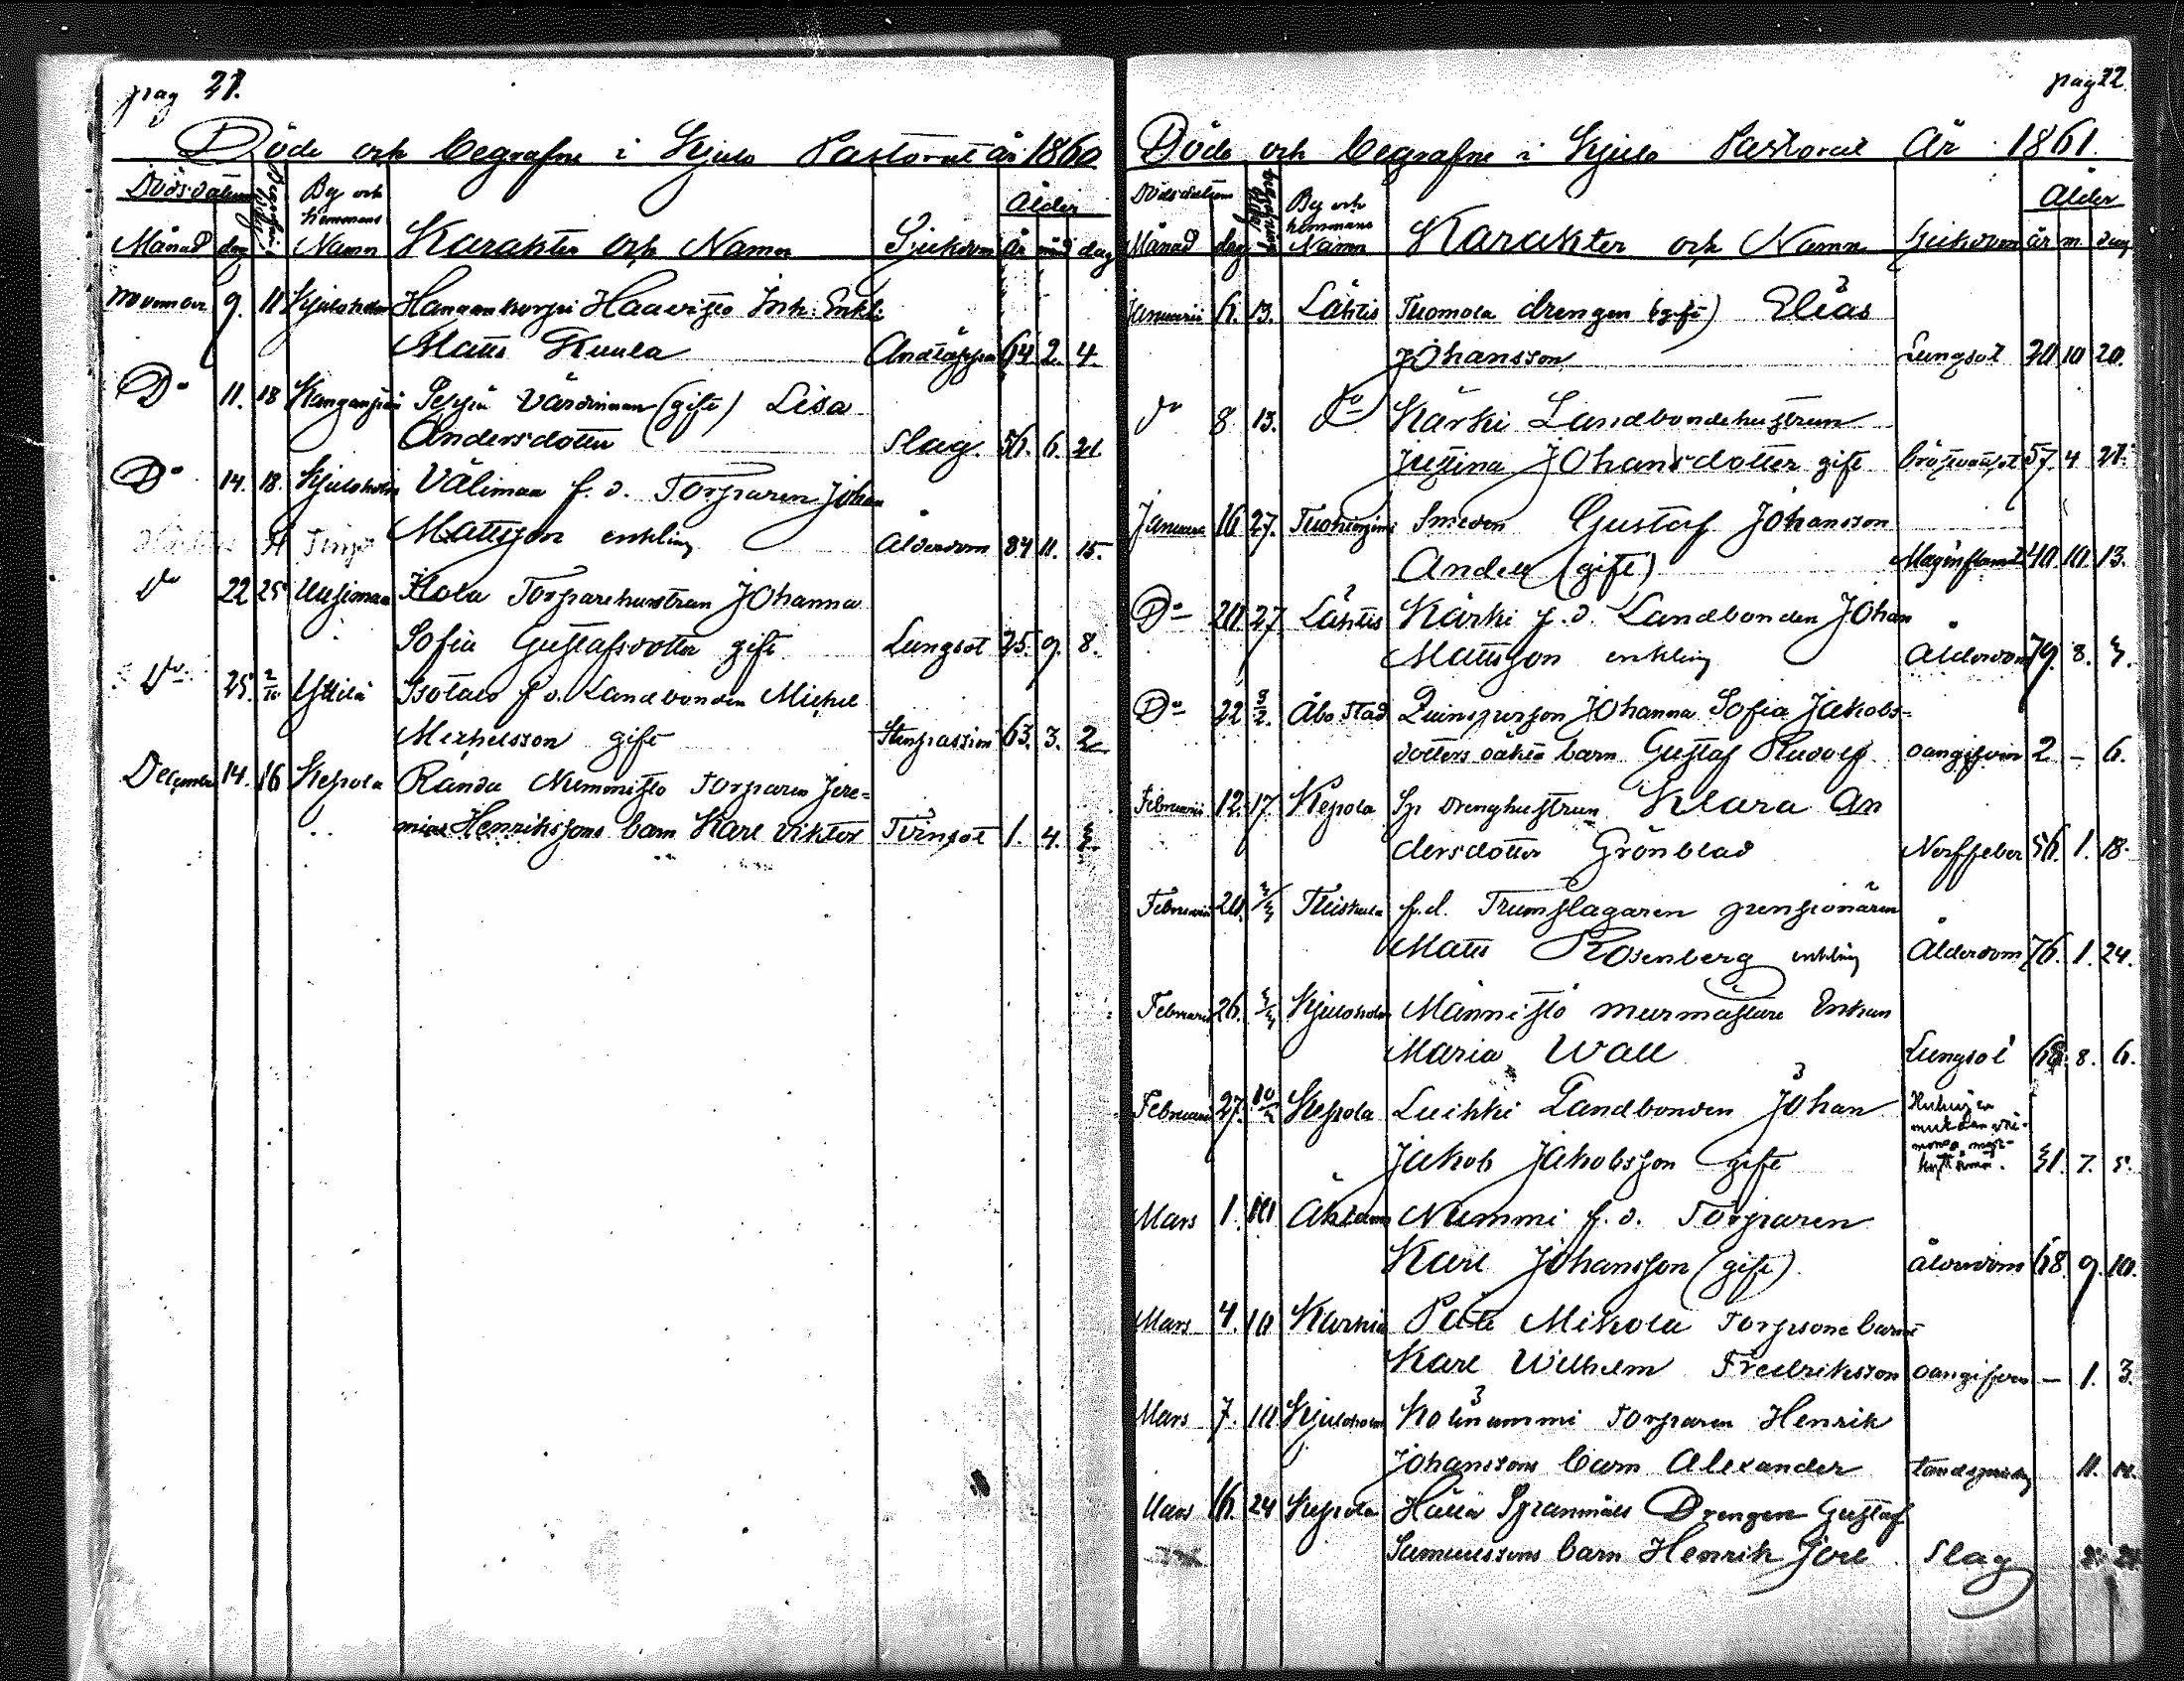 pag 21.
Döde och begrafne i Kjulo Pastorat år 1860
Dödsdatum By och hemmans Ålder
Månad dag Namn Karakter och Namn Sjukdom år mån dag
November 9. 11 Kjuloholm Hangankorpi Haavisto Inh. Enkl:
Matts Kuula Andtäppa 64 2. 4.
Do 11. 18 Seppä Värdinnan (gift) Lisa
Andersdotter Slag. 56. 6. 21
Do 14. 18. Kjuloholm Välimaa f. d. Torparen Johan
Mattsson enkling Ålderdom 84 11. 15.
do 22 25 Uusimaa Torparehustrun Johanna
Sofia Gustafsdotter gift Lungsot 25. 9. 8.
do 25. 2/10 Yttilä Isotalo f. d. Landbonden Michel
Michelsson gift Stenpassion 63. 3. 2
December 14. 16 Kepola Randa Nummisto Torparen Jere=
mias Henrikssons barn Karl Viktor Tvinsot 1. 4. 3.
pag 22
Döde och begrafne i Kjulo Pastorat År 1861.
Dödsdatum By och hemmans Ålder
Månad dag Namn Karakter och Namn Sjukdom år m. dag
Januarii 6. 13. Lähtis Tuomola drengen (gift) Elias
Johansson Lungsot 20 10 20.
do 8. 13. do Kärki Landbondehustrun
Justina Johansdotter gift 57. 4 21.
Januarii 16 27. Smeden Gustaf Johansson
(gift) 40. 10. 13.
Do 20. 27 Lähtis Kärki f. d. Landbonden Johan
Mattsson enkling Ålderdom 79. 8. 3.
Do 22 3/2. Åbo Stad Qvinsperson Johanna Sofia Jakobs=
dotters oäkta barn Gustaf Rudolf oangifven 2 – 6.
Februarii 12. 17. Kepola Sp drenghustrun Klara An
dersdotter Grönblad Nerffeber 56. 1. 18.
Februarii 20. 3/3 f. d. Trumslagaren pensionären
Matts Rosenberg enkling Ålderdom 76. 1. 24.
Februarii 26. 3/3 Kjuloholm Männistö murmästare Enkan
Maria Wall Lungsot 68. 8. 6.
Februarii 27. 10/3 Kepola Luihki Landbonden Johan
Jakob Jakobsson gift 31. 7. 5.
Mars 1. 10 Nummi f. d. Torparen
Karl Johansson (gift) ålderdom 68. 9. 10.
Mars 4. 10 Mikola barn
Karl Wilhelm Fredriksson oangifven – 1. 3.
Mars 7. 10. Kjuloholm Kolinummi Torparen Henrik
Johanssons barn Alexander 11.
Mars 16. 24 Kepola Drengen Gustaf
Samuelssons barn Henrik Joel Slag